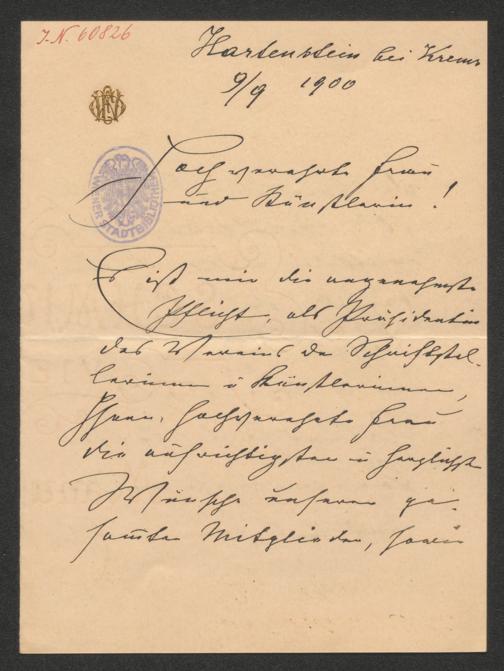 I.N. 60826
Hartenstein bei Krems
9/9 1900
WIENER STADTBIBLIOTHEK
Hochverehrte Frau
und Künstlerin!
Es ist mir die angenehmste
Pflicht, als Präsidentin
des Vereins der Schriftstel-
lerinnen u Künstlerinnen,
Ihnen, hochverehrte Frau
die aufrichtigsten u herzlichsten
Wünsche unserer ge-
samten Mitglieder, sowie